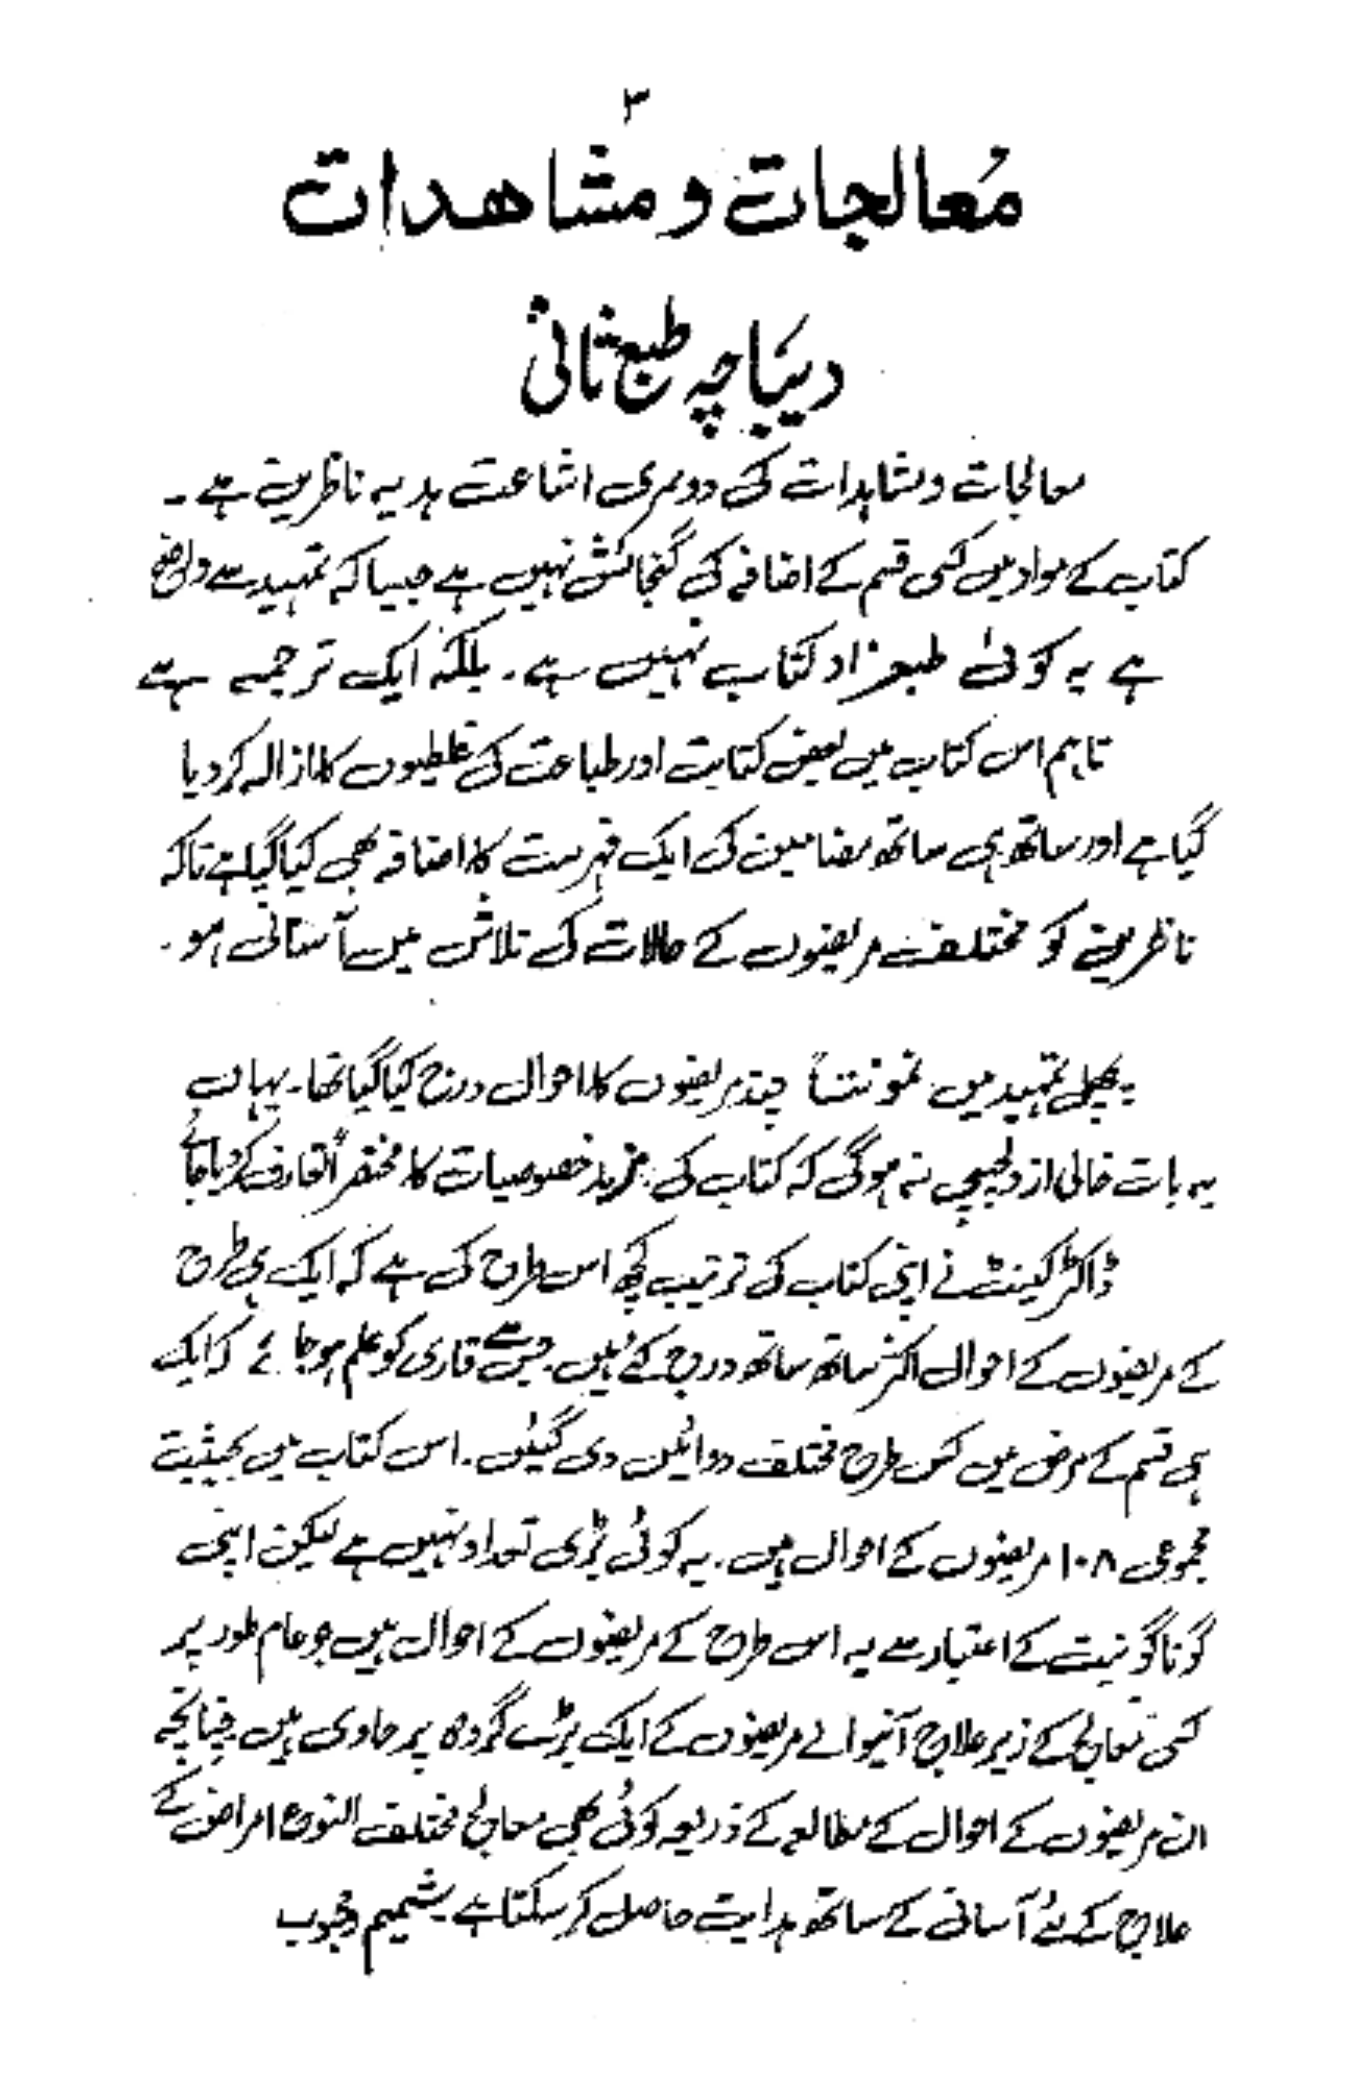 ۳
مُعالجات و مشاهدات
دیباچہ طبع ثانی
معالجات و مشاہدات کی دوسری اشاعت ہدیہ ناظرین ہے۔
کتاب کے مواد میں کسی قسم کے اضافہ کی گنجائش نہیں ہے جیسا کہ تمہید سے واضح
ہے یہ کوئی طبعزاد کتاب نہیں ہے۔ بلکہ ایک ترجمہ ہے
تاہم اس کتاب میں بعض کتابت اور طباعت کی غلطیوں کا ازالہ کر دیا
گیا ہے اور ساتھ ہی ساتھ مضامین کی ایک فہرست کا اضافہ بھی کیا گیا ہے تاکہ
ناظرین کو مختلف مریضوں کے حالات کی تلاش میں آسانی ہو۔
پچھلی تمہید میں نمونتاً چند مریضوں کا احوال درج کیا گیا تھا۔ یہاں
یہ بات خالی از دلچسپی نہ ہوگی کہ کتاب کی مزید خصوصیات کا مختصراً تعارف کر دیا جائے
ڈاکٹر کینٹ نے اپنی کتاب کی ترتیب کچھ اس طرح کی ہے کہ ایک ہی طرح
کے مریضوں کے احوال اکثر ساتھ ساتھ درج کئے ہیں۔ جس سے قاری کو علم ہو جائے کہ ایک
ہی قسم کے مرض میں کس طرح مختلف دوائیں دی گئیں۔ اس کتاب میں بحیثیت
مجموعی ۱۰۸ مریضوں کے احوال ہیں۔ یہ کوئی بڑی تعداد نہیں ہے لیکن اپنی
گوناگونیت کے اعتبار سے یہ اس طرح کے مریضوں کے احوال ہیں جو عام طور پر
کسی معالج کے زیر علاج آنیوالے مریضوں کے ایک بڑے گروہ پر حاوی ہیں چنانچہ
ان مریضوں کے احوال کے مطالعہ کے ذریعہ کوئی بھی معالج مختلف النوع امراض کے
علاج کے لئے آسانی کے ساتھ ہدایت حاصل کر سکتا ہے۔ شمیم